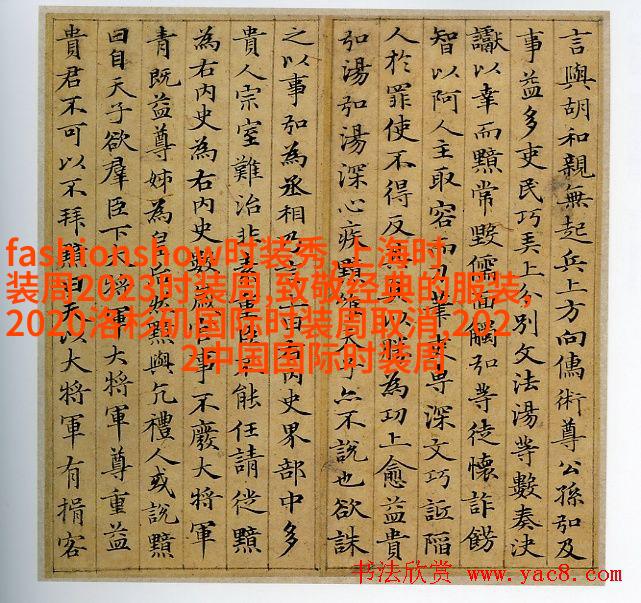 言與胡和親無起兵上方向儒術尊公孫弘及
事益多吏民巧弄上分別文法湯等數奏決
讞以幸而黯常毀儒面觸弘等徒懷詐飾
智以阿人主取容而刀筆吏專深文巧詆陷
人於罪使不得反其真以勝為功上愈益貴
弘湯弘湯深心疾黯唯天子亦不說也欲誅
之以事弘為丞相乃言上曰右內史界部中多
貴人宗室難治非素重臣不能任請徙黯
為右內史為右內史數歲官事不廢大將軍
青既益尊姊為皇后然黯與亢禮人或說黯
曰自天子欲羣臣下大將軍大將軍尊重益
貴君不可以不拜黯曰夫以大將軍有揖客
fashionshow时装秀,上海时
装周2023时装周,致敬经典的服装,
2020洛杉矶国际时装周取消,202
2中国国际时装周
书法欣赏 www.yac8.com